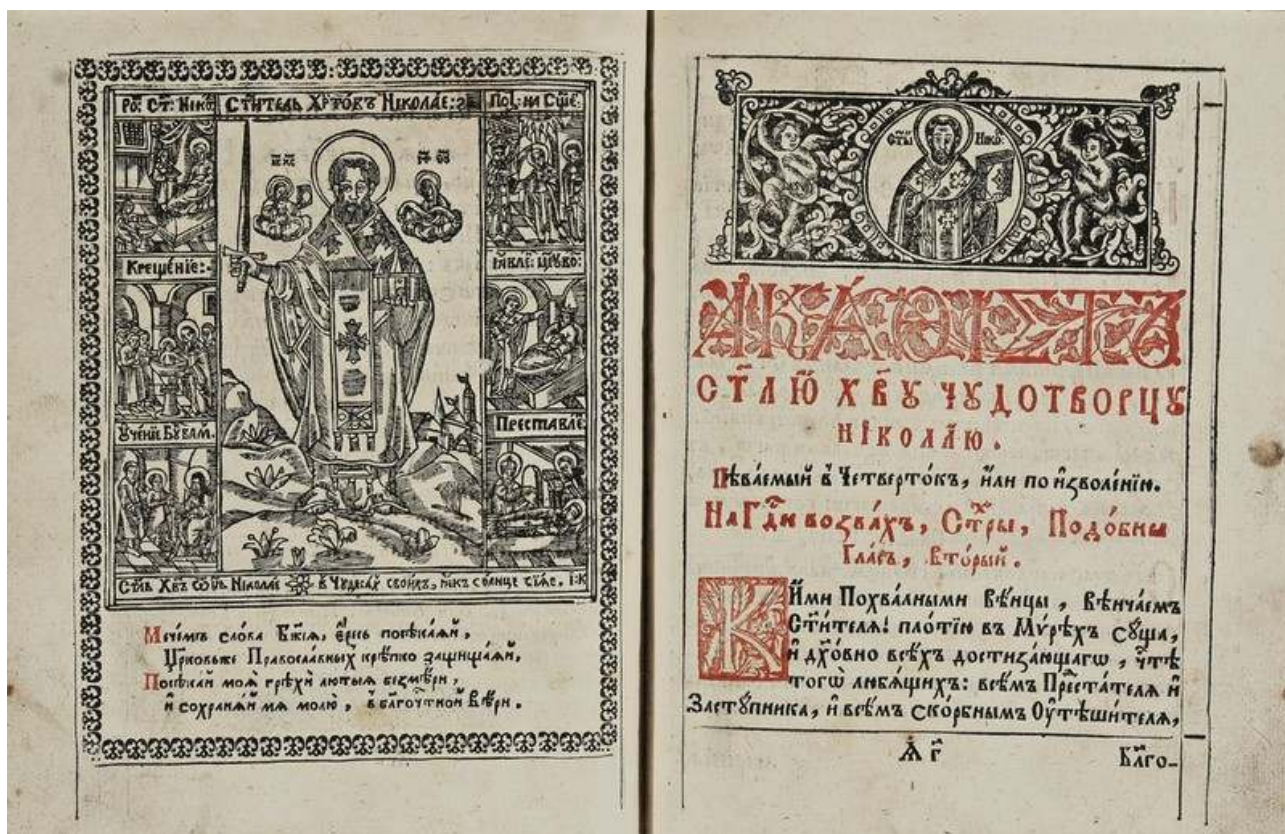 РОЖ: СТ: НІКО
СТ҃ИТЕЛЬ ХРТ҇ОВЪ НІКОЛАЕ:
КРЕЩЕ́НЇЕ:
ОУЧЕ́НЇЕ БУКВАМ
ІАВЛЕ: ЦР҃Ю ВО:
ПРЕСТАВЛЕ
СТ҃ЛЬ ХВ҃Ъ ѠЧ҃Ъ НІКОЛАЕ в Чудесаⷯ свои́хъ, ꙗ҆́кѡ со́лнце сїѧе. І:К
Мече́мъ сло́ва Бж҃їѧ, є҆́ресь посѣка́ѧй,
Цр҃ковьже Правосла́вныхъ крѣ́пко защища́ѧй,
Посѣка́й моѧ̀ грѣхѝ лю́тыѧ безмѣ́рн,
и҆ сохранѧ́й мѧ молю̀, в̾ бл҃гоч҇тной Вѣ́рн.
СТ҃Ы НИКО:
А҆КА́ѲІСТЪ
СТ҃ЛЮ̀ ХВ҃У ЧУДОТВОРЦУ
НІКОЛА́Ю.
Пѣва́емый в̾ Четверто́къ, и҆́ли по и҆зволе́нїю.
На Гд҇и возва́хъ, Стⷯры, Подо́бны
Гла́съ, Вто́рый.
Кі́ими Похва́лными Вѣнцы̀, Вѣнча́емъ
Ст҃и́телѧ! пло́тїю въ Мѵ́рѣхъ су́ща,
и҆ дх҃о́вно всѣ́хъ достиза́ющаго, чⷭ҇тѣ
того̀ лю́бѧщихъ: всѣ́мъ Прⷣеста́телѧ и҆
Засту́пника, и҆ всѣ́мъ ско́рбнымъ Оу҆тѣши́телѧ,
Ѧ г҃
Бл҃го-